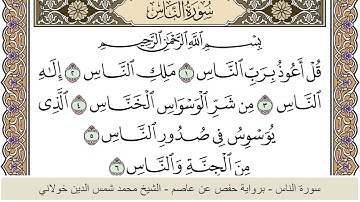 سُورَةُ النَّاسِ
بِسْمِ اللَّهِ الرَّحْمَٰنِ الرَّحِيمِ
قُلْ أَعُوذُ بِرَبِّ النَّاسِ ١ مَلِكِ النَّاسِ ٢ إِلَٰهِ
النَّاسِ ٣ مِن شَرِّ الْوَسْوَاسِ الْخَنَّاسِ ٤ الَّذِي
يُوَسْوِسُ فِي صُدُورِ النَّاسِ ٥
مِنَ الْجِنَّةِ وَالنَّاسِ ٦
سورة الناس - برواية حفص عن عاصم - الشيخ محمد شمس الدين خولاني